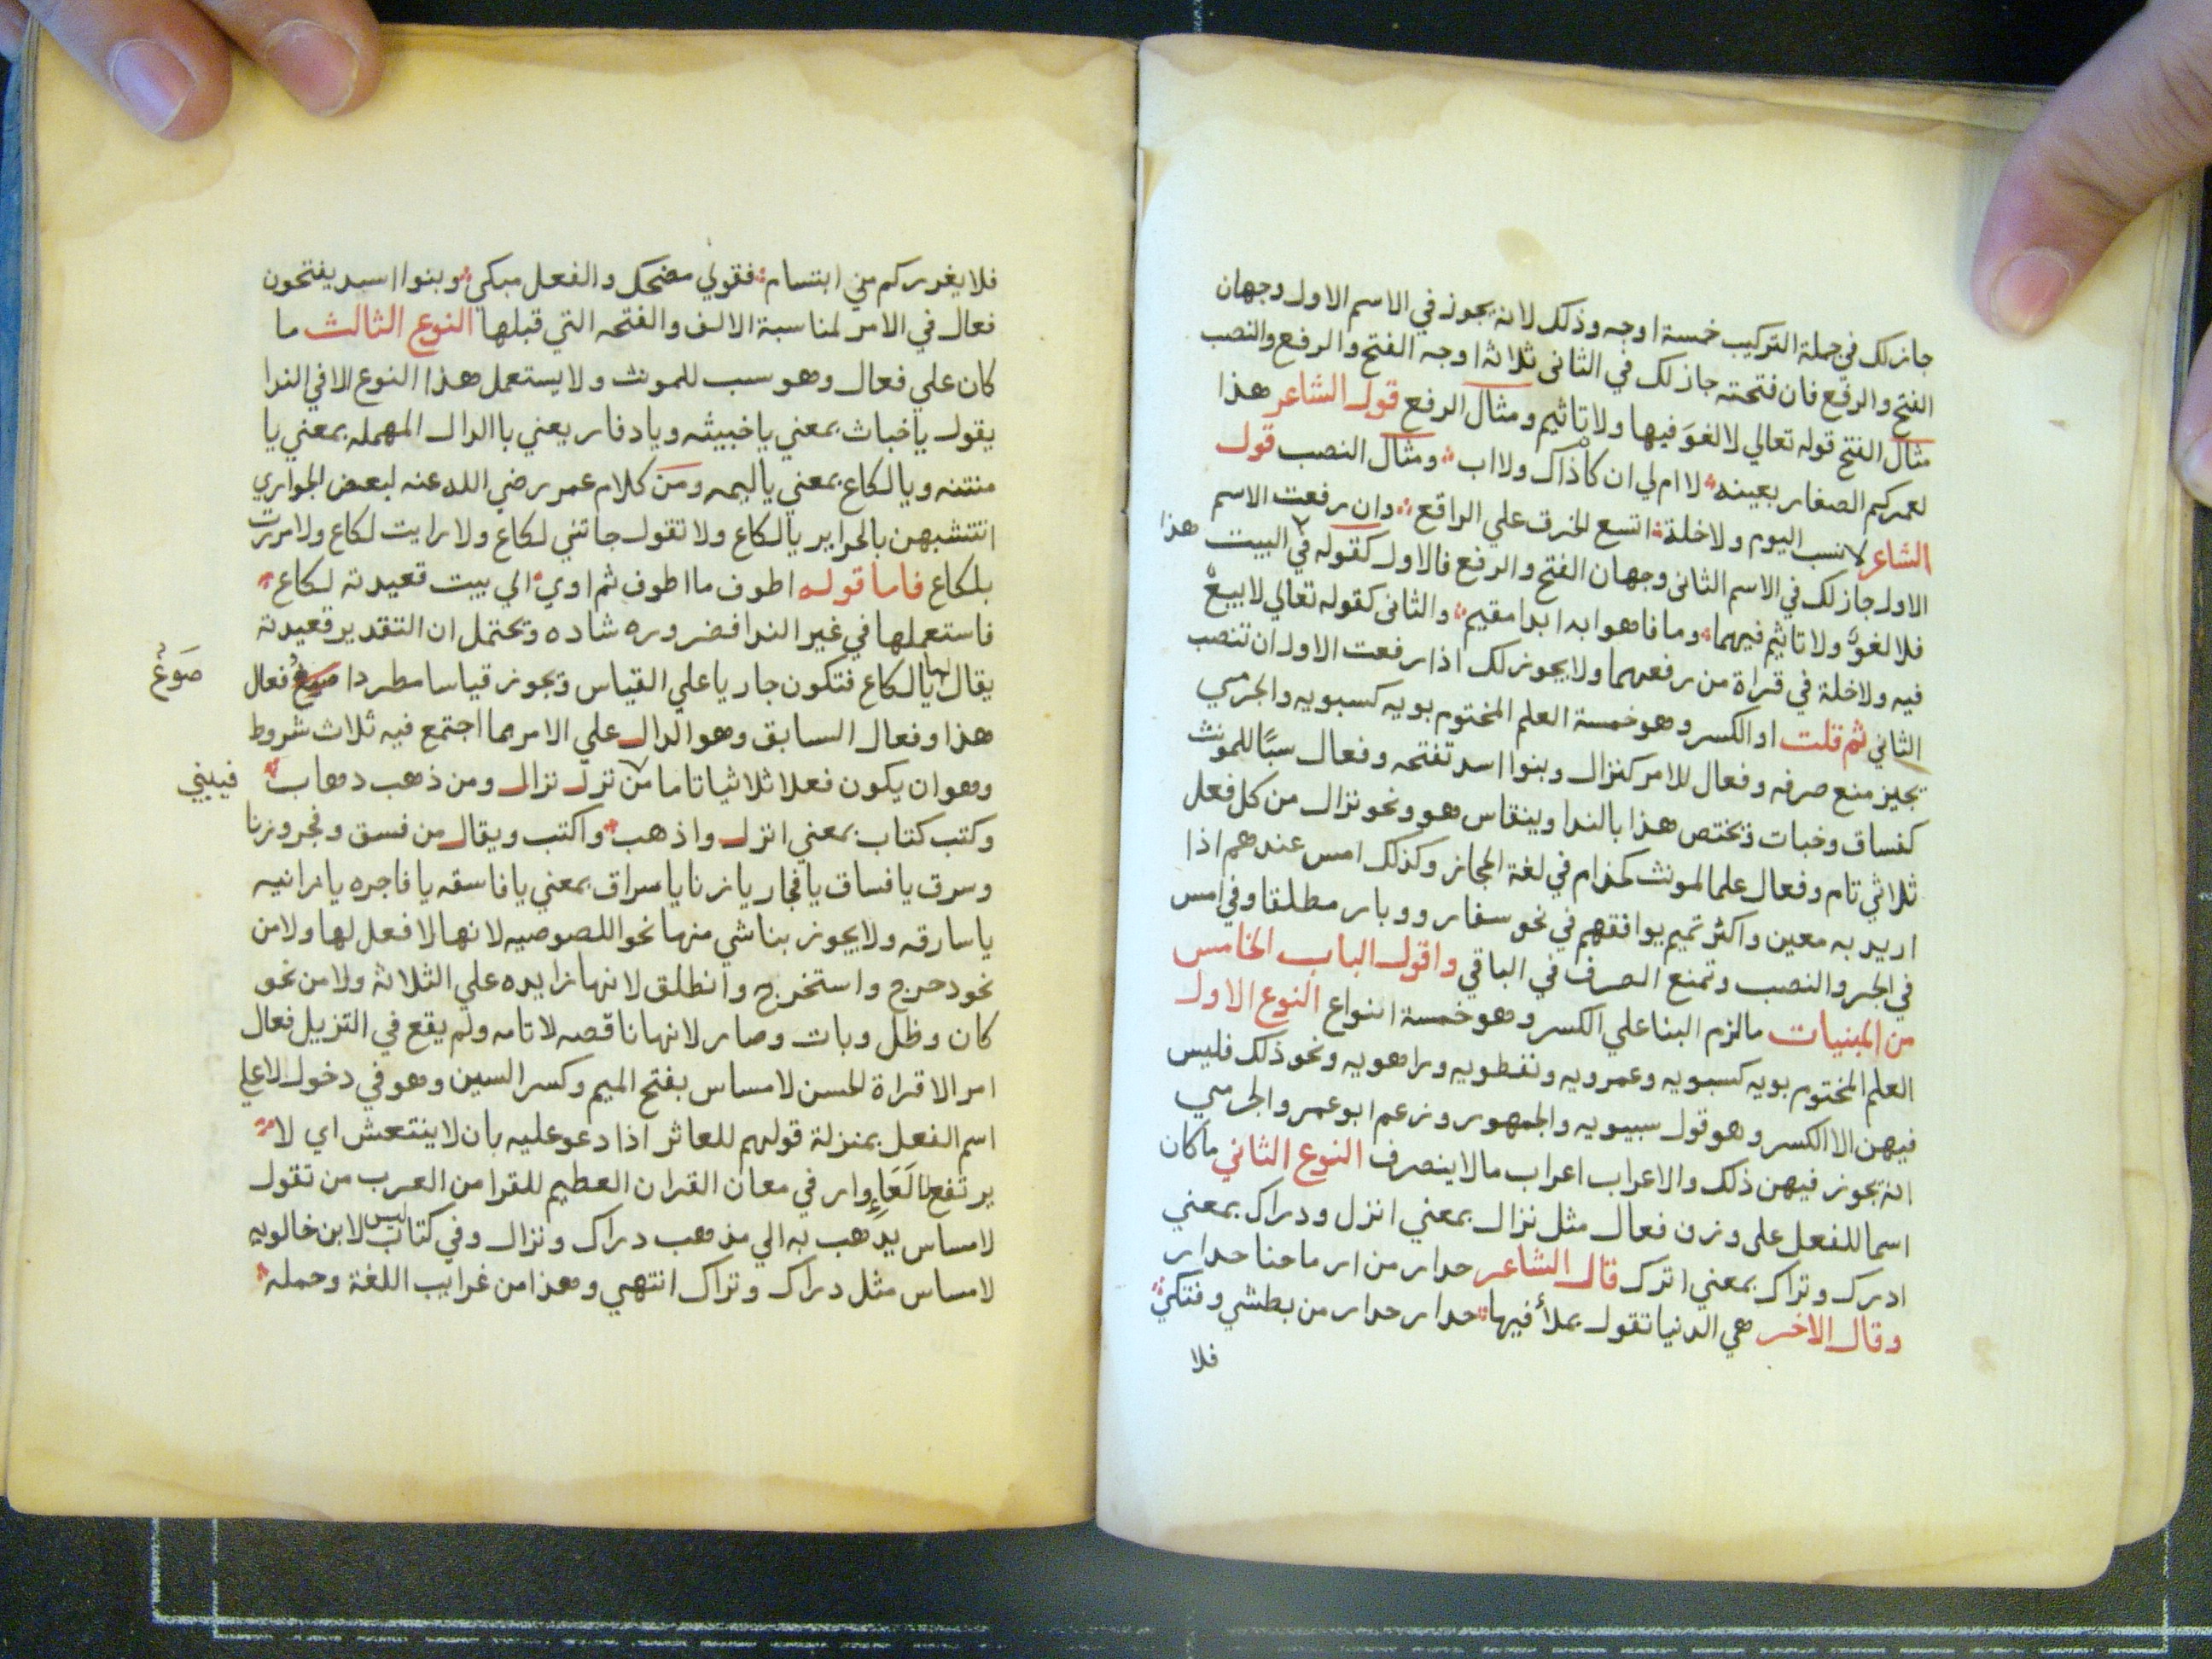 جاز لك في جملة التركيب خمسة اوجه وذلك لانه يجوز في الاسم الاول وجهان
الفتح والرفع فان فتحته جاز لك في الثاني ثلاثة اوجه الفتح والرفع والنصب
مثال الفتح قوله تعالي لا لغوَ فيها ولا تاثيم ومثال الرفع قول الشاعر هذا
لعمركم الصغار بعينه لا ام لي ان كان ذاك ولا اب ومثال النصب قول
الشاعر لا نسب اليوم ولا خلة اتسع الخرق علي الراقع وان رفعت الاسم
الاول جاز لك في الاسم الثاني وجهان الفتح والرفع فالاول كقوله في البيت هذا
فلا لغوٌ ولا تاثيم فيها وما فاهوا به ابدا مقيم والثاني كقوله تعالي لا بيعٌ
فيه ولا خلة في قراة من رفعهما ولا يجوز لك اذا رفعت الاول ان تنصب
الثاني ثم قلت او الكسر وهو خمسة العلم المختوم بويه كسبويه والجرمي
يجيز منع صرفه وفعال للامر كنزال وبنوا اسد تفتحه وفعال سبًا للمونث
كفساق وخبات ويختص هذا بالندا وينقاس هو ونحو نزال من كل فعل
ثلاثي تام وفعال علما لمونث كحذام في لغة الحجاز وكذلك امس عندهم اذا
اريد به معين واكثر تميم يوافقهم في نحو سفار ووبار مطلقا وفي امس
في الجر والنصب وتمنع الصرف في الباقي واقول الباب الخامس
من المبنيات ما لزم البنا علي الكسر وهو خمسة انواع النوع الاول
العلم المختوم بويه كسبويه وعمرويه ونفطويه وراهويه ونحو ذلك فليس
فيهن الا الكسر وهو قول سيبويه والجمهور وزعم ابو عمر والجرمي
انه يجوز فيهن ذلك والاعراب اعراب ما لا ينصرف النوع الثاني ما كان
اسما للفعل على وزن فعال مثل نزال بمعني انزل ودراك بمعني
ادرك وتراك بمعني اترك قال الشاعر حدار من ارماحنا حدار
وقال الاخر هي الدنيا تقول بملأ فيها حدار حدار من بطشي وفتكي
فلا
فلا يغرركم مني ابتسام فقولي مضحك والفعل مبكي وبنوا اسد يفتحون
فعال في الامر لمناسبة الالف والفتحه التي قبلها النوع الثالث ما
كان علي فعال وهو سب للمونث ولا يستعمل هذا النوع الا في الندا
يقول يا خباث بمعني يا خبيثه ويا دفار يعني باالدال المهمله بمعني يا
منتنه ويا لكاع بمعني يا ليمه ومن كلام عمر رضي الله عنه لبعض الجواري
اتتشبهن بالحراير يا لكاع ولا تقول جاتني لكاع ولا رايت لكاع ولا مررت
بلكاع فاما قوله اطوف ما اطوف ثم اوي الي بيت قعيدته لكاع
فاستعملها في غير الندا فضروره شاده ويحتمل ان التقدير قعيدته
يقال لها يا لكاع فتكون جاريا علي القياس ويجوز قياسا مطردا فعال
صَوغ
هذا وفعال السابق وهو الدال علي الامر مما اجتمع فيه ثلاث شروط
وهو ان يكون فعلا ثلاثيا تاما من نزل نزال ومن ذهب دهاب
فيبني
وكتب كتاب بمعني انزل واذهب واكتب ويقال من فسق وفجر وزنا
وسرق يا فساق يا فجار يا زنا يا سراق بمعني يا فاسقه يا فاجره يا زانيه
يا سارقه ولا يجوز بنا شي منها نحو اللصوصيه لانها لا فعل لها ولا من
نحو دحرج واستخرج وانطلق لانها زايده علي الثلاثة ولا من نحو
كان وظل وبات وصار لانها ناقصه لا تامه ولم يقع في التزيل فعال
امر الا قراة الحسن لا مساس بفتح الميم وكسر السين وهو في دخول لا علي
اسم الفعل بمنزلة قولهم للعاثر اذا دعو عليه بان لا ينتعش اي لا
يرتفع لا لَعَا وار في معان القران العظيم للفرا من العرب من تقول
لا مساس يدهب به الي مذهب دراك ونزال وفي كتاب ليس لابن خالويه
لا مساس مثل دراك وتراك انتهي وهذا من غرايب اللغة وحمله